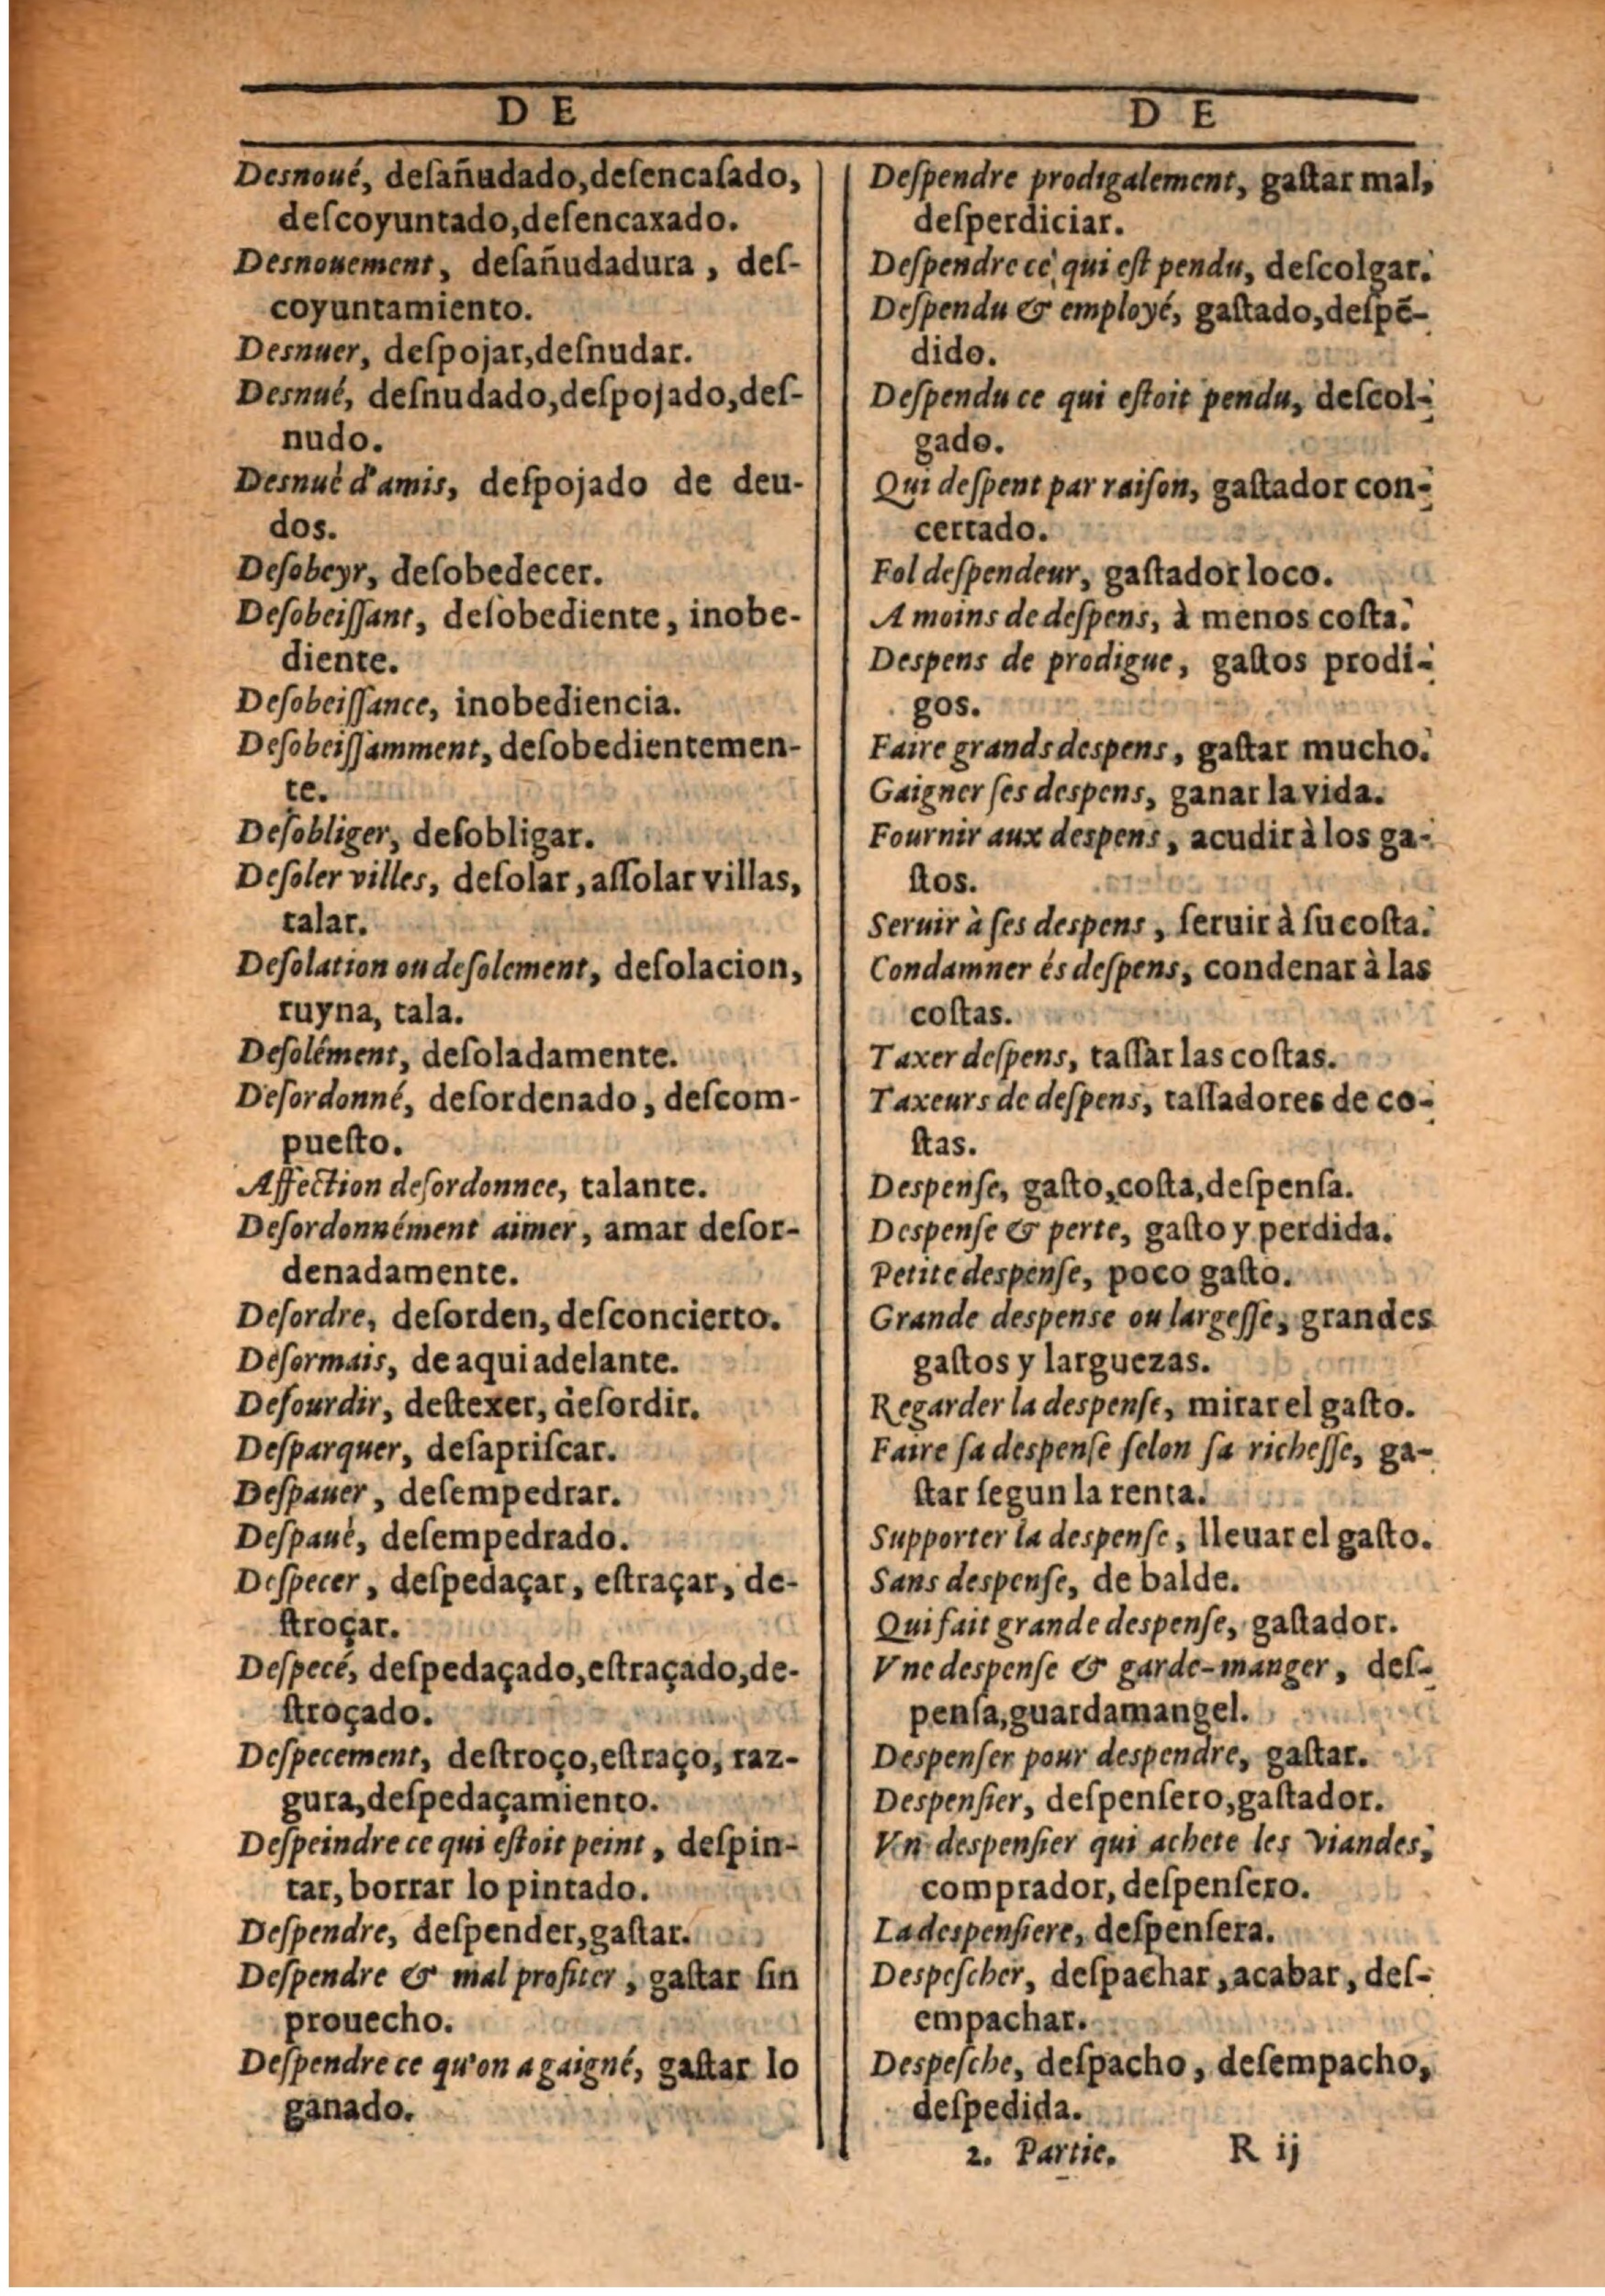 D E
Desnoué, deſañudado,deſencaſado,
deſcoyuntado,deſencaxado.
Desnouement, deſañudadura, deſ-
coyuntamiento.
Desnuer, deſpojar,deſnudar.
Desnué, deſnudado,deſpojado,deſ-
nudo.
Desnuè d'amis, deſpojado de deu-
dos.
Deſobeyr, deſobedecer.
Deſobeiſſant, deſobediente, inobe-
diente.
Deſobeiſſance, inobediencia.
Deſobeiſſamment, deſobedientemen-
te.
Deſobliger, deſobligar.
Deſoler villes, deſolar, aſſolar villas,
talar.
Deſolation ou deſolement, deſolacion,
ruyna, tala.
Deſolément, deſoladamente.
Deſordonné, deſordenado, deſcom-
pueſto.
Affection deſordonnee, talante.
Deſordonnément aimer, amar deſor-
denadamente.
Deſordre, deſorden, deſconcierto.
Deſormais, de aqui adelante.
Deſourdir, deſtexer, deſordir.
Deſparquer, deſapriſcar.
Deſpauer, deſempedrar.
Deſpauè, deſempedrado.
Deſpecer, deſpedaçar, eſtraçar, de-
ſtroçar.
Deſpecé, deſpedaçado,eſtraçado,de-
ſtroçado.
Deſpecement, deſtroço,eſtraço, raz-
gura,deſpedaçamiento.
Deſpeindre ce qui eſtoit peint, deſpin-
tar, borrar lo pintado.
Deſpendre, deſpender,gaſtar.
Deſpendre & mal profiter, gaſtar ſin
prouecho.
Deſpendre ce qu'on a gaigné, gaſtar lo
ganado.
D E
Deſpendre prodigalement, gaſtar mal,
deſperdiciar.
Deſpendre ce qui eſt pendu, deſcolgar.
Deſpendu & employé, gaſtado,deſpẽ-
dido.
Deſpendu ce qui eſtoit pendu, deſcol-
gado.
Qui deſpent par raiſon, gaſtador con-
certado.
Fol deſpendeur, gaſtador loco.
A moins de deſpens, à menos coſta.
Despens de prodigue, gaſtos prodi-
gos.
Faire grands despens, gaſtar mucho.
Gaigner ſes despens, ganar la vida.
Fournir aux despens, acudir à los ga-
ſtos.
Seruir à ſes despens, ſeruir à ſu coſta.
Condamner és deſpens, condenar à las
coſtas.
Taxer deſpens, taſſar las coſtas.
Taxeurs de deſpens, taſſadores de co-
ſtas.
Despenſe, gaſto,coſta,deſpenſa.
Despenſe & perte, gaſto y perdida.
Petite despenſe, poco gaſto.
Grande despense ou largeſſe, grandes
gaſtos y larguezas.
Regarder la despenſe, mirar el gaſto.
Faire ſa despenſe ſelon ſa richeſſe, ga-
ſtar ſegun la renta.
Supporter la despenſe, lleuar el gaſto.
Sans despenſe, de balde.
Qui fait grande despenſe, gaſtador.
Vne despenſe & garde-manger, deſ-
penſa,guardamangel.
Despenſer pour despendre, gaſtar.
Despenſier, deſpenſero,gaſtador.
Vn despenſier qui achete les viandes,
comprador, deſpenſero.
La despenſiere, deſpenſera.
Despeſcher, deſpachar, acabar, deſ-
empachar.
Despeſche, deſpacho, deſempacho,
deſpedida.
2. Partie. R ij